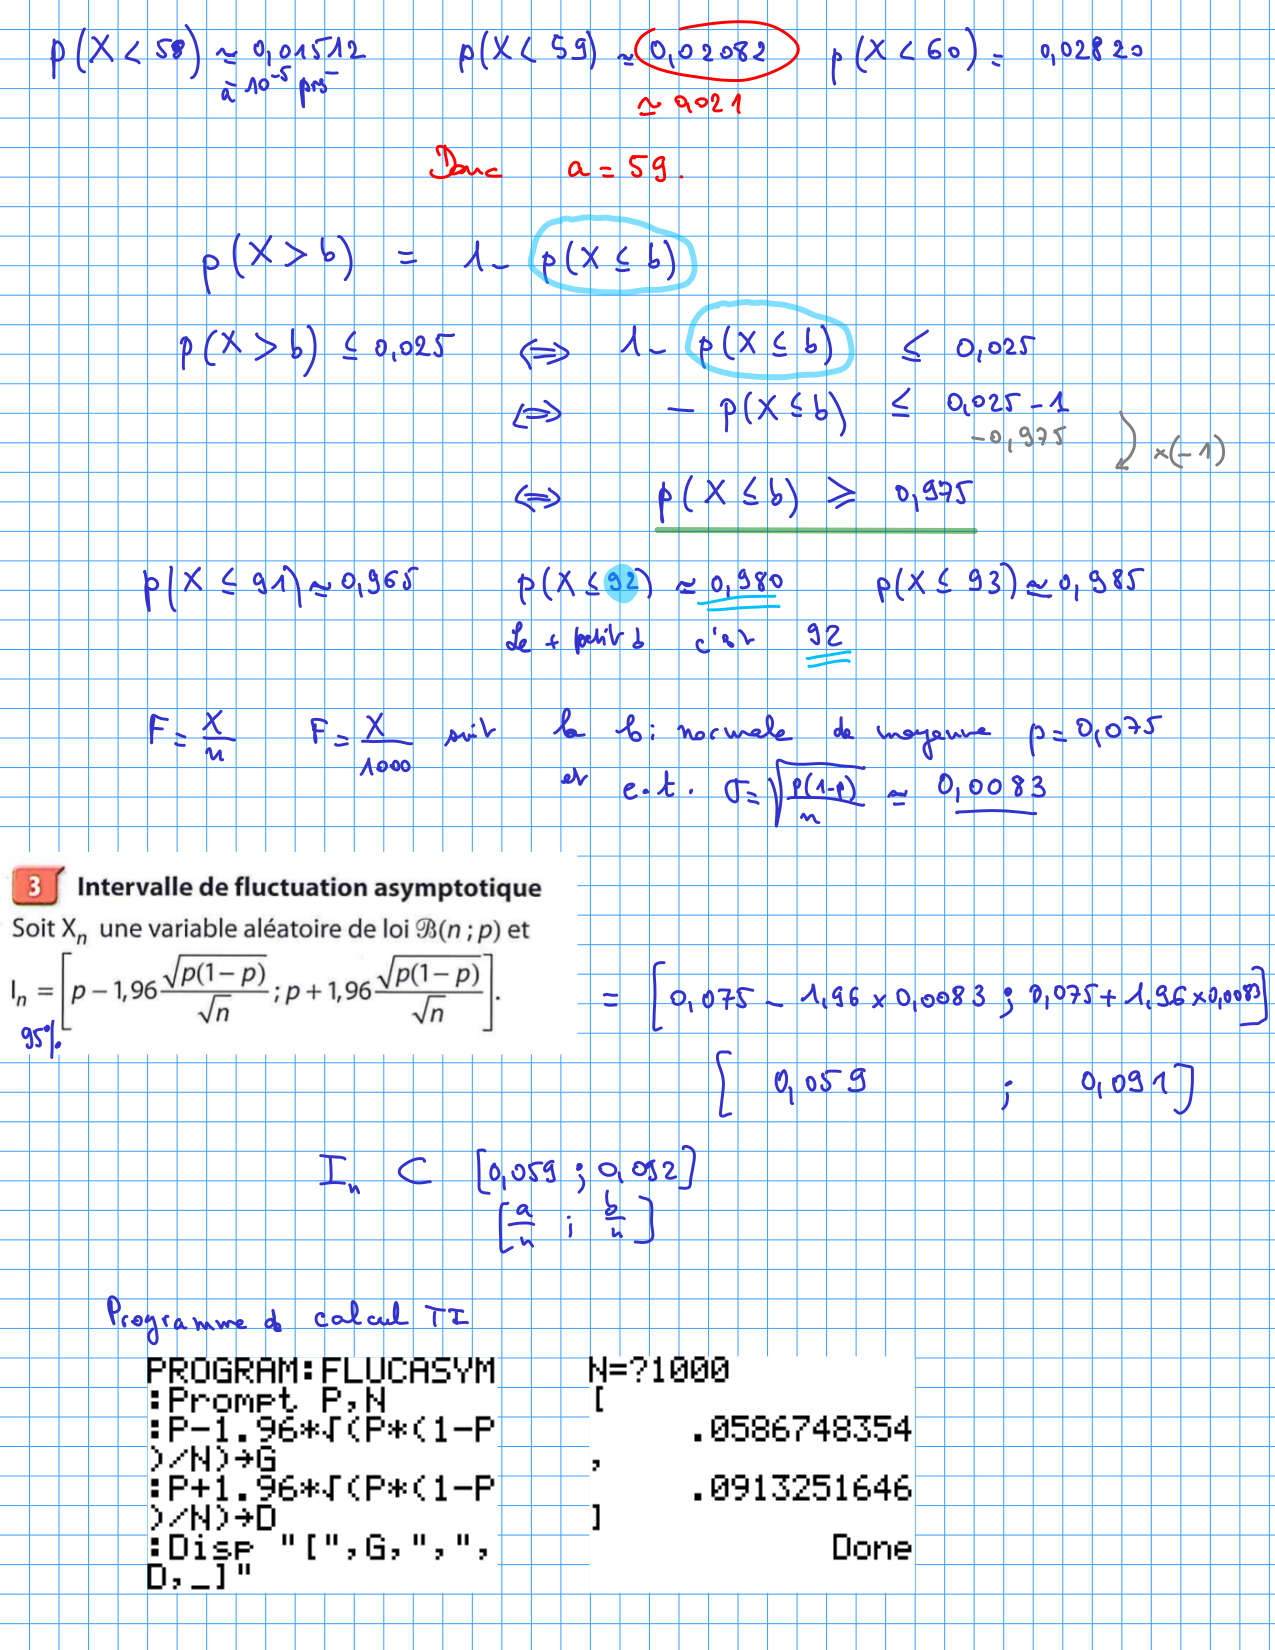 p(X < 58) ≃ 0,01512 p(X < 59) ≃ 0,02082 p(X < 60) = 0,02820
à 10⁻⁵ près
≃ 0,021
Donc a = 59.
p(X > b) = 1 - p(X ≤ b)
p(X > b) ≤ 0,025 ⟺ 1 - p(X ≤ b) ≤ 0,025
⟺ - p(X ≤ b) ≤ 0,025 - 1
-0,975 ×(-1)
⟺ p(X ≤ b) ≥ 0,975
p(X ≤ 91) ≃ 0,965 p(X ≤ 92) ≃ 0,980 p(X ≤ 93) ≃ 0,985
Le + petit b c'est 92
F = X/n F = X/1000 suit la loi normale de moyenne p = 0,075
et e.t. σ = √(p(1-p)/n) ≃ 0,0083
3 Intervalle de fluctuation asymptotique
Soit Xₙ une variable aléatoire de loi ℬ(n ; p) et
Iₙ = [p − 1,96 √(p(1 − p))/√n ; p + 1,96 √(p(1 − p))/√n].
= [0,075 - 1,96 × 0,0083 ; 0,075 + 1,96 × 0,0083]
95%
[0,059 ; 0,091]
Iₙ ⊂ [0,059 ; 0,092]
[a/n ; b/n]
Programme de calcul TI
PROGRAM:FLUCASYM
:Prompt P,N
:P-1.96*√(P*(1-P
)/N)→G
:P+1.96*√(P*(1-P
)/N)→D
:Disp "[",G,",",
D,_]"
N=?1000
[
.0586748354
,
.0913251646
]
Done